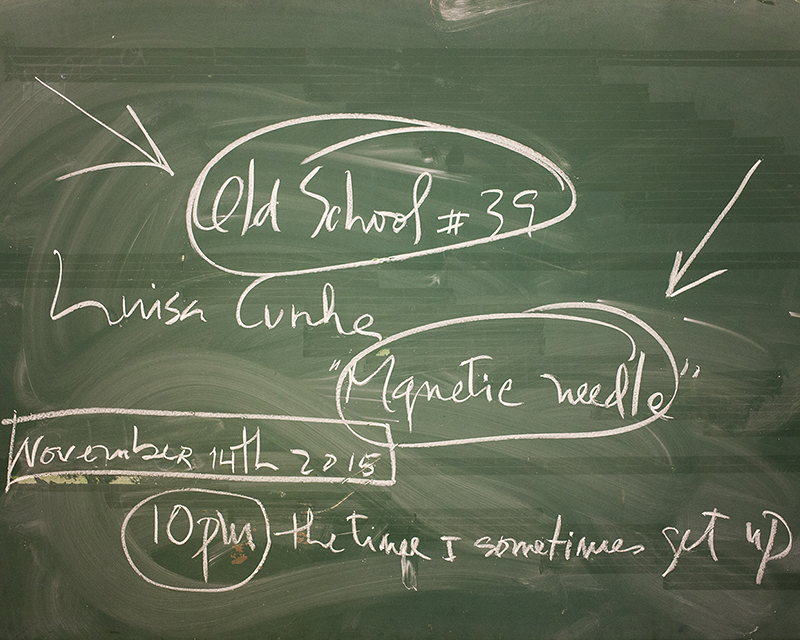 Old School # 39
Luisa Cunha
"Magnetic needle"
November 14th 2015
10pm the time I sometimes get up